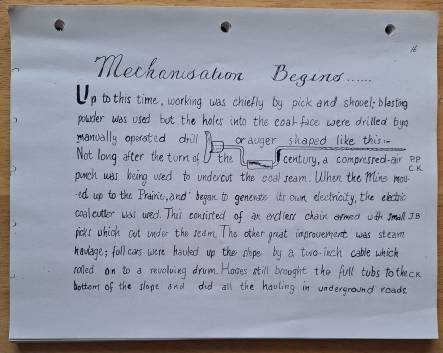 16
Mechanisation Begins......
Up to this time, working was chiefly by pick and shovel; blasting
powder was used but the holes into the coal-face were drilled by a
manually operated drill or auger shaped like this:-
Not long after the turn of the century, a compressed-air P.P.
punch was being used to undercut the coal seam. When the Mine mov- C.K.
ed up to the Prairie, and began to generate its own electricity, the electric
coalcutter was used. This consisted of an endless chain armed with small J.B
picks which cut under the seam. The other great improvement was steam
haulage; full cars were hauled up the slope by a two-inch cable which
rolled on to a revolving drum. Horses still brought the full tubs to the C.K
bottom of the slope and did all the hauling in underground roads.